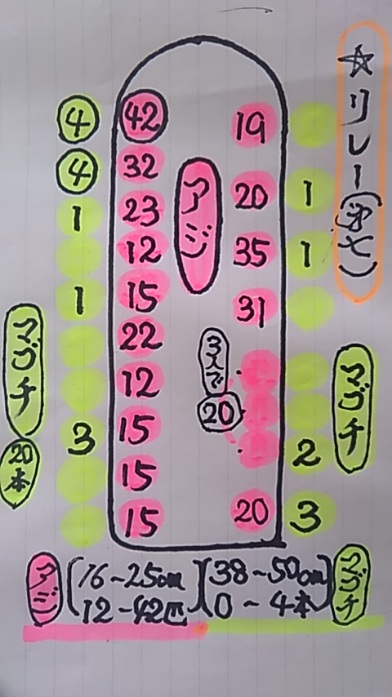 ☆リレー(㐧七)
4 42 19
4 32
アジ
20 1
1 23
12 35 1
1 15 31
22
3人で
20
12
マゴチ
20本
マゴチ
3 15 2
15
15 20 3
アジ (16~25cm)(38~50cm) マゴチ
12~42匹 0~4本